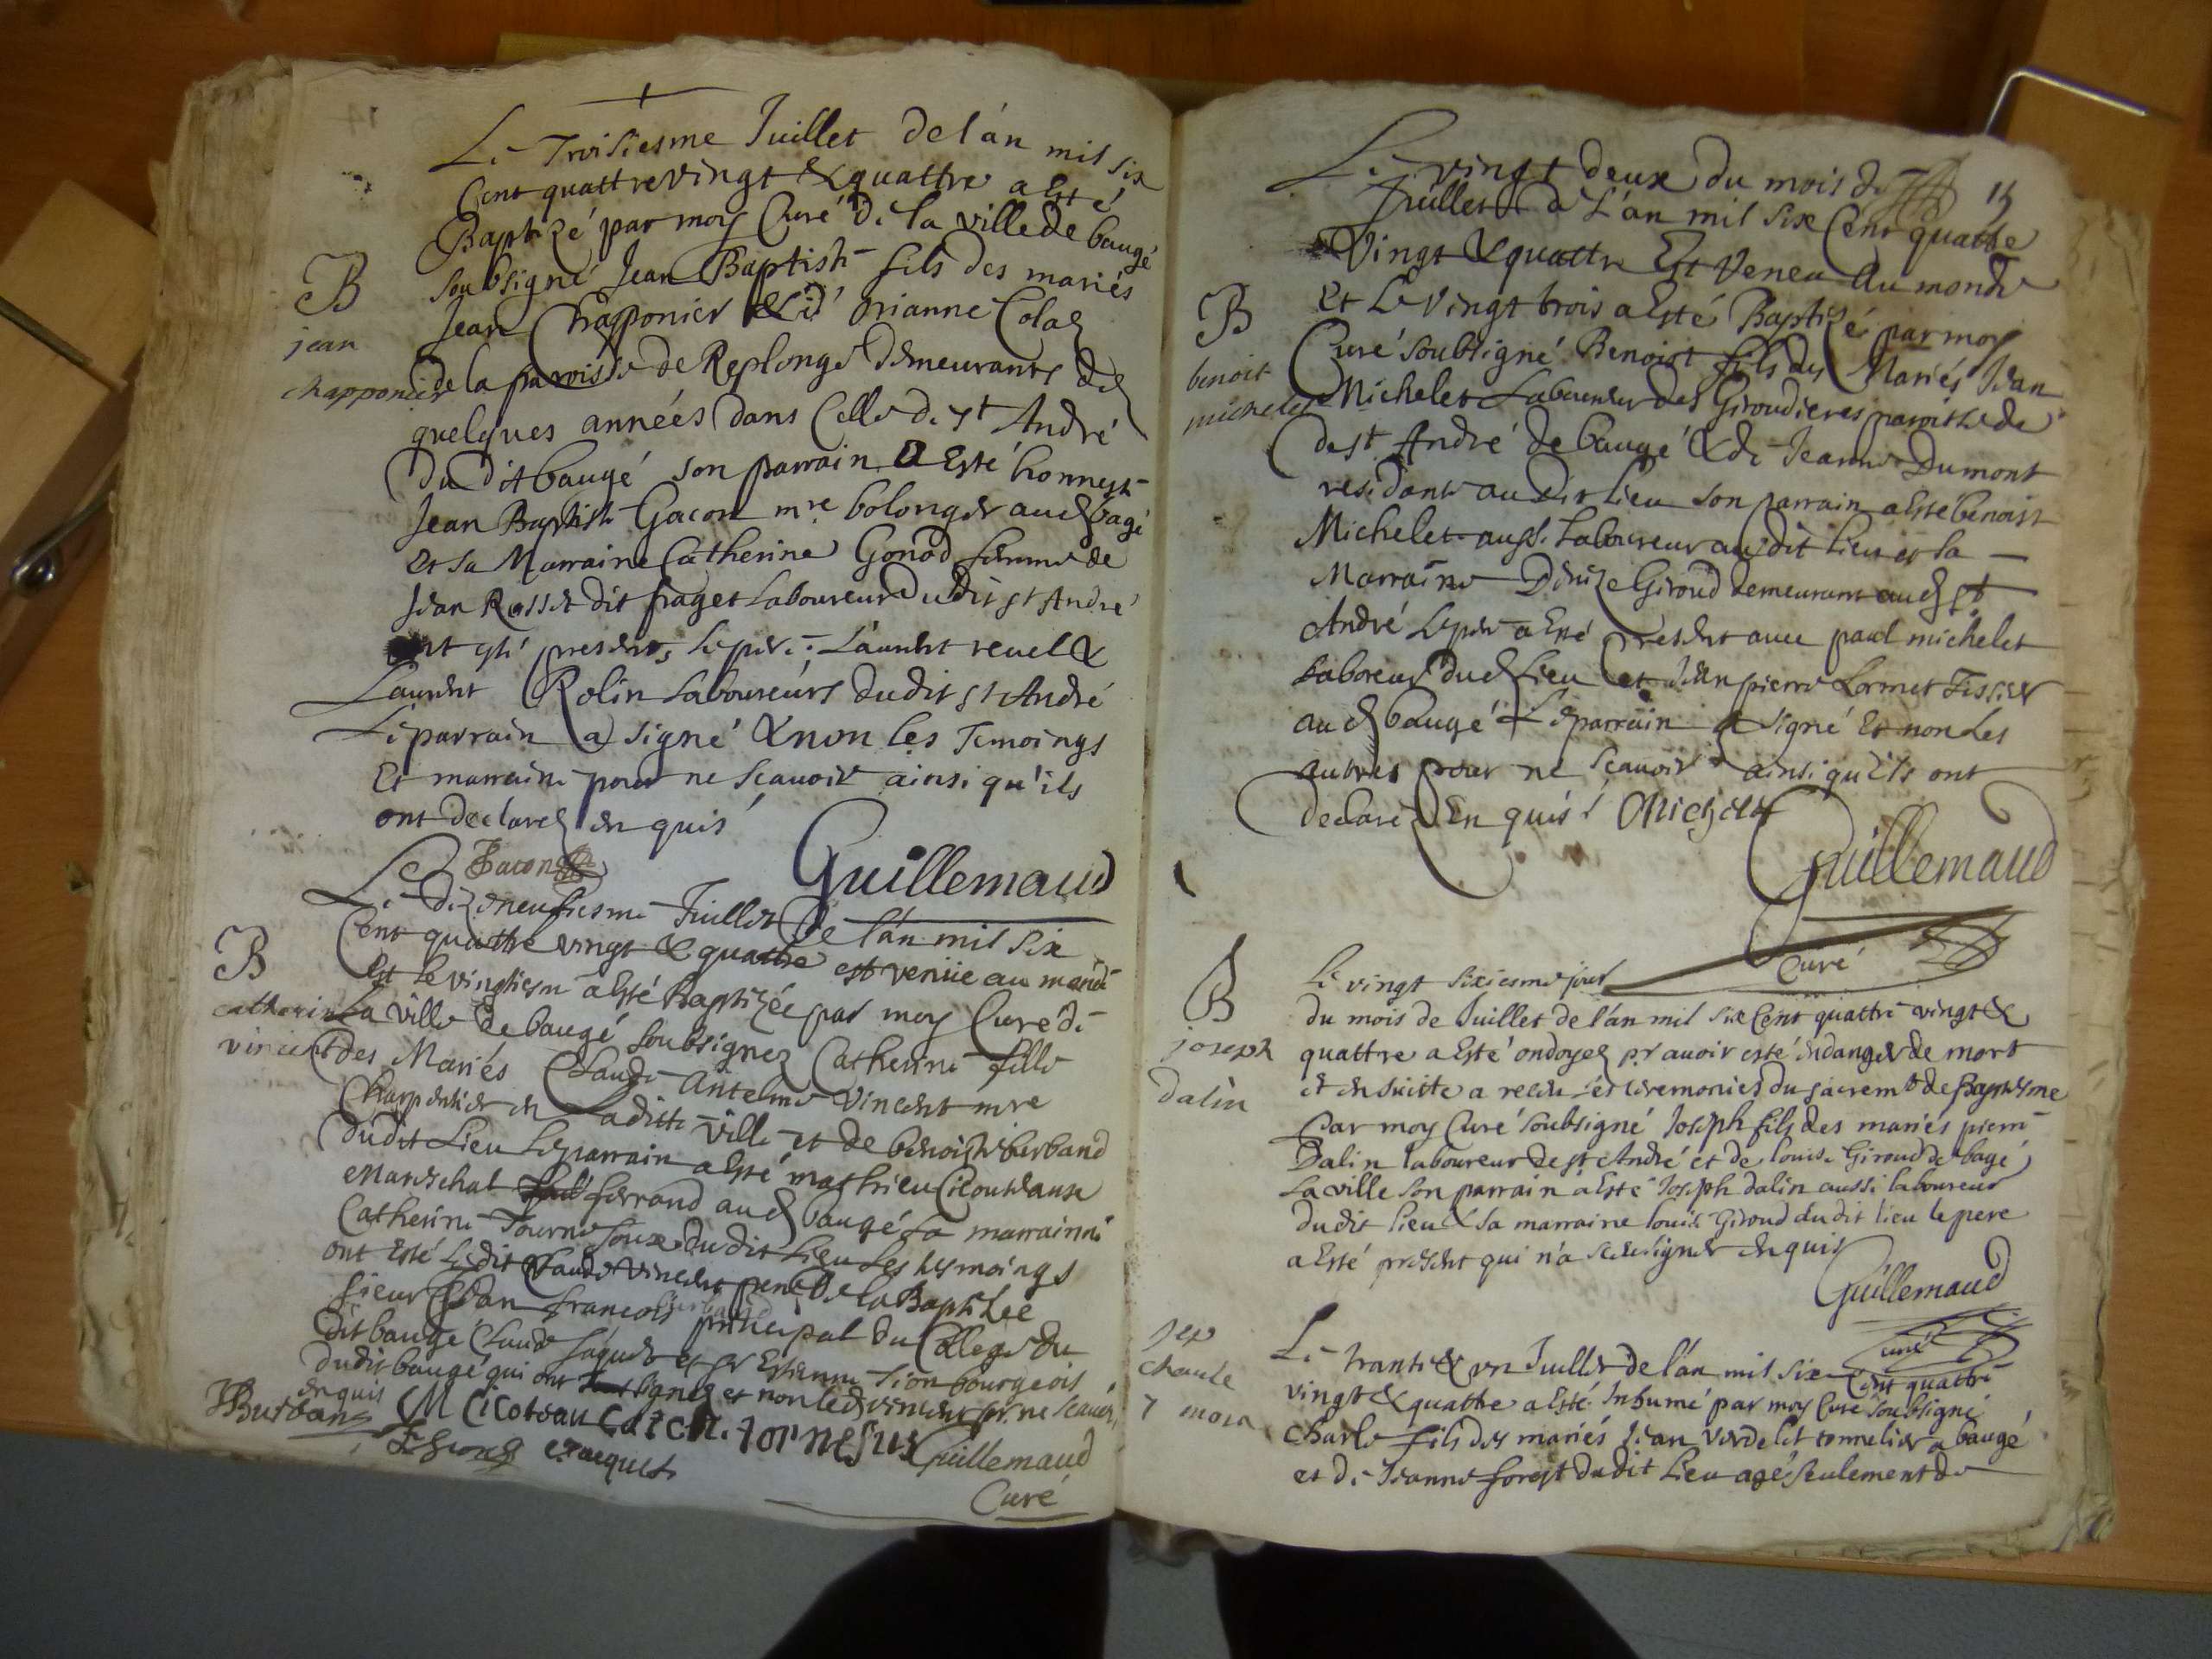 Le Troisiesme Juillet de l'an mil six
Cent quattre vingt & quattre a Esté
Baptizé par moy Curé de la ville de baugé
soubsigné Jean Baptiste fils des mariés
B
Jean Chapponier & d' orianne Colas
jean
chapponier
de la paroisse de Replonge demeurants des
quelques années dans Celle de st André
du dit baugé son parrain a Esté honneste
Jean Baptiste Gacon mre bolonger aud bagé
et sa Marraine Catherine Gonod femme de
Jean Rosset dit fraget Laboureur du dit st André
ont presents le pere Laurent revel &
Laurent Rolin Laboureurs dudit st André
Le parrain a signé & non les Temoings
Et marraine pour ne scauoir ainsi qu'ils
ont declarez enquis
Gacon
Guillemaud
Le dizeneufiesme Juillet de l'an mil six
Cent quattre vingt & quattre est venüe au monde
B
Est le vingtiesm a Esté Baptizée par moy Curé de
catherin
La ville de baugé soubsignez Catherine fille
vincent
des Mariés Claude Antelme Vincent mre
Charpentier en La ditte ville et de benoiste burband
dudit Lieu Le parrain a Esté mathieu Cicouteaux
Mareschal ferrand aud baugé sa marraine
Catherine Tournesoux du dit Lieu Les tesmoings
ont Esté Ledit Claude vincent pere de la Baptizée
sieur Jean francois burband principal du College du
dit baugé Claude Jaquet et sr Estienne Sion bourgeois
dudit baugé qui ont signez et non led vincent pr ne scauoir
enquis
JBurband M Cicoteau CatCh. tornesus
Guillemaud
ESion C Jacquet
Curé
15
Le vingt deux du mois de
Juillet de L'an mil six Cent quatte
Vingt & quattre Est Veneu Au monde
B
Et Le Vingt trois a Esté Baptizé par moy
Curé soubsigné Benoist fils des Mariés Jean
benoit
michelet
Michelet Laboureur des Giroudieres paroisse de
de st André de baugé & de Jeanne Dumont
residants audit Lieu son parrain a Esté benoist
Michelet aussi Laboureur audit Lieu et la
Marraine Denize Giroud demeurant aud st
André Le pere a Esté present auec paul michelet
Laboreur dud Lieu et Jean pierre Lormet Tissier
aud baugé Le parrain a signé Et non Les
autres pour ne scauoir ainsi qu'ils ont
declaré Enquis Michelet
Guillemaud
Curé
Le vingt sixiesme jour
B
du mois de Juillet de l'an mil six Cent quattre vingt &
joseph
quattre a Esté ondoyez pr auoir esté en danger de mort
dalin
et en suitte a receu les ceremonies du sacremt de Baptesme
Par moy Curé soubsigné Joseph fils des mariés pierre
Dalin laboureur de st André et de louise Giroud de bagé
La ville son parrain a Esté Joseph dalin aussi laboureur
du dit lieu & sa marraine louise Giroud dudit lieu le pere
a Esté present qui n'a sceu signer enquis
Guillemaud
curé
Sep
Le trante & un Juillet de l'an mil six Cent quattre
charle
vingt & quattre a Esté Inhumé par moy Curé soubsigné
7 mora
Charle fils des mariés Jean Verdelet tonnelier a baugé
et de Jeanne forest dudit Lieu agé seulement de